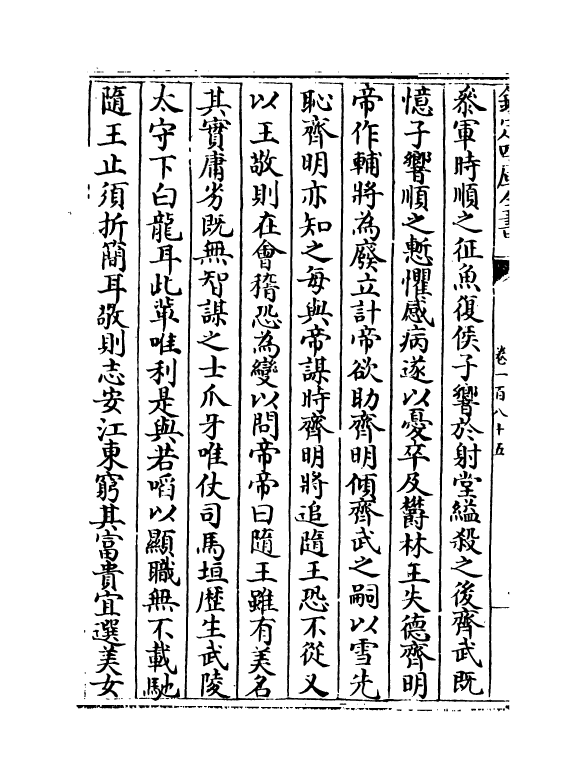 欽定四庫全書
卷一百八十五
叅軍時順之征魚復侯子響於射堂縊殺之後齊武既
憶子響順之慙懼感病遂以憂卒及欝林王失德齊明
帝作輔將為廢立計帝欲助齊明傾齊武之嗣以雪先
恥齊明亦知之每與帝謀時齊明將追隨王恐不從又
以王敬則在會稽恐為變以問帝帝曰隨王雖有美名
其實庸劣既無智謀之士爪牙唯仗司馬垣歴生武陵
太守卞白龍耳此輩唯利是與若啗以顯職無不載馳
隨王止須折簡耳敬則志安江東窮其富貴宜選美女